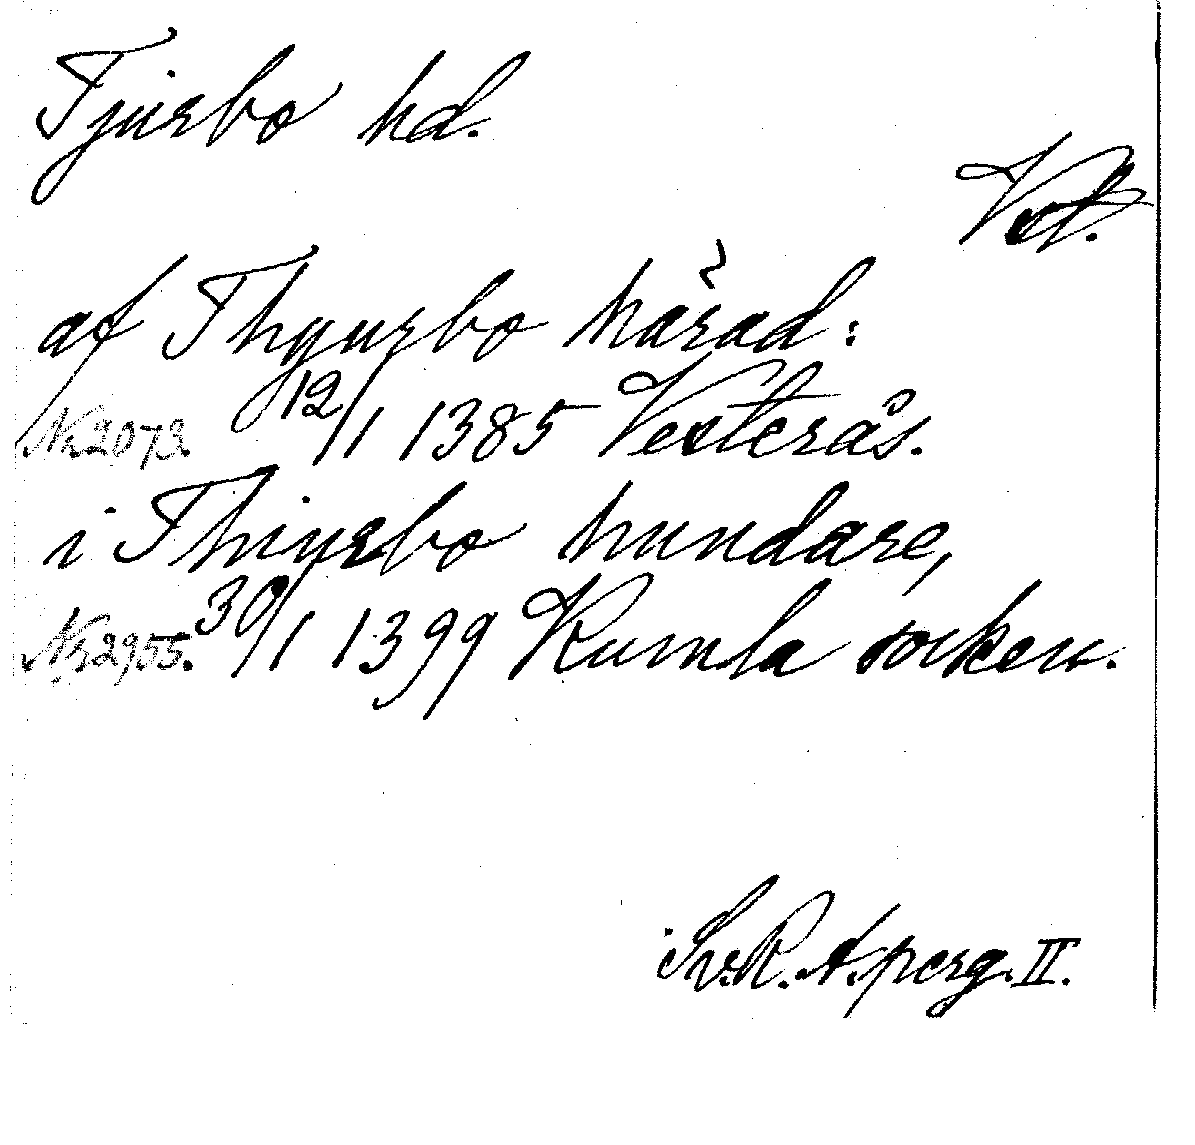 Tjurbo hd.
Vstl.
af Thyurbo härad:
Nr 2073. 12/1 1385 Vesterås.
i Thiurbo hundare,
Nr 2955. 30/1 1399 Kumla socken.
Sv. R. A. perg. II.